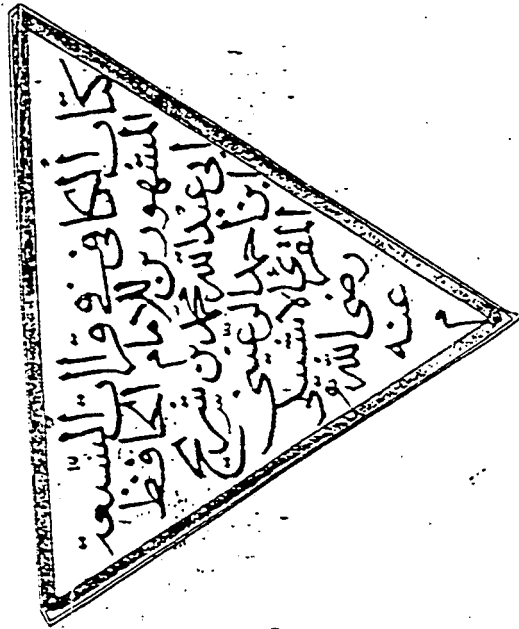 كتاب الكافى فى قراات السبعة
المشهورين للامام الحافظ
ابى عبد الله محمد بن شريح
ابن احمد الرعينى
المقرئ الاشبيلى
رضى الله
عنه
م